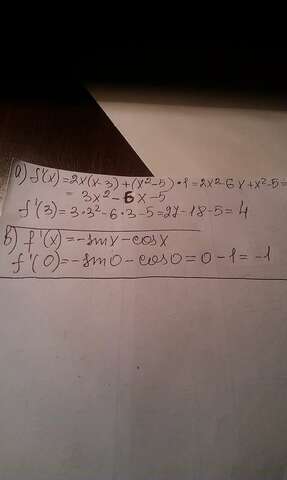 а) f'(x)=2x(x-3)+(x²-5)·1=2x²-6x+x²-5=
= 3x²-6x-5
f'(3)=3·3²-6·3-5=27-18-5=4
б) f'(x)=-sinx-cosx
f'(0)=-sin0-cos0=0-1=-1